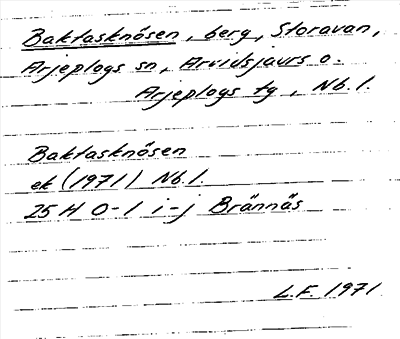 Baktasknösen, berg, Storavan,
Arjeplogs sn, Arvidsjaurs o.
Arjeplogs tg, Nb.l.
Baktasknösen
ek (1971) Nb.l.
25 H 0-1 i-j Brännäs
L.F. 1971